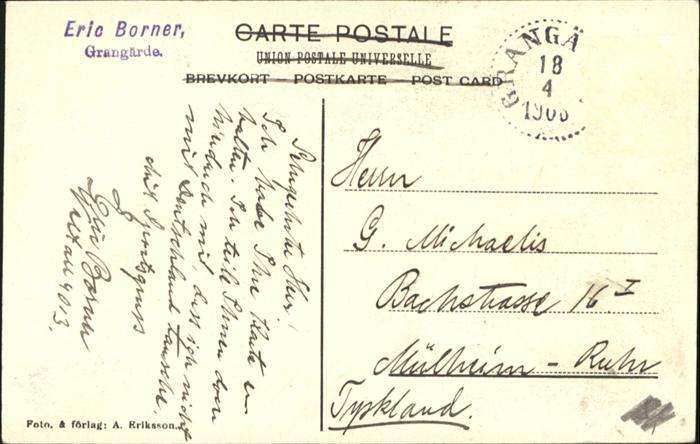 Eric Borner,
Grangärde.
CARTE POSTALE
UNION POSTALE UNIVERSELLE
BREVKORT - POSTKARTE - POST CARD
GRANGÄ
18
4
1906
Sehrgeehrter Herr!
Ich habe Ihre Karte er-
halten. Ich teile Ihnen
hierdurch mit dass ich nicht
mit Deutschland tausche.
Mit Sportsgruss
Eric Borner
4013.
Herrn
G. Michaelis
Bachstrasse 16 I
Mülheim - Ruhr
Tyskland.
Foto. & förlag: A. Eriksson.